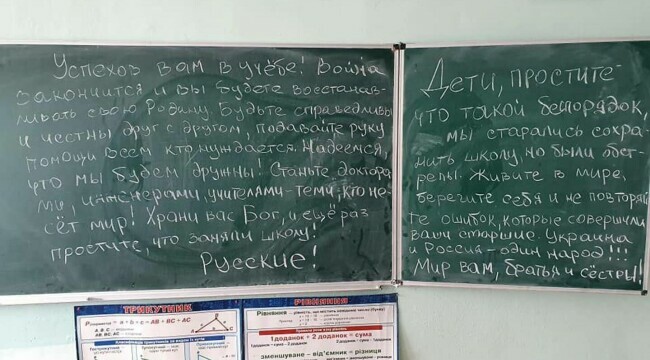 Успехов вам в учёбе! Война
закончится и вы будете восстанав-
ливать свою Родину. Будьте справедливы
и честны друг с другом, подавайте руку
помощи всем кто нуждается. Надеемся,
что мы будем дружны! Станьте доктора-
ми, инженерами, учителями – теми, кто не-
сёт мир! Храни вас Бог, и ещё раз
простите, что заняли школу!
Русские!
Дети, простите
что такой беспорядок,
мы старались сохра-
нить школу, но были обст-
релы. Живите в мире,
берегите себя и не повторяй
те ошибок, которые совершили
ваши старшие. Украина
и Россия – один народ!!!
Мир вам, братья и сёстры!
ТРИКУТНИК
P = a + b + c = AB + BC + AC
РІВНЯННЯ
1доданок + 2 доданок = сума
зменшуване – від'ємник = різниця